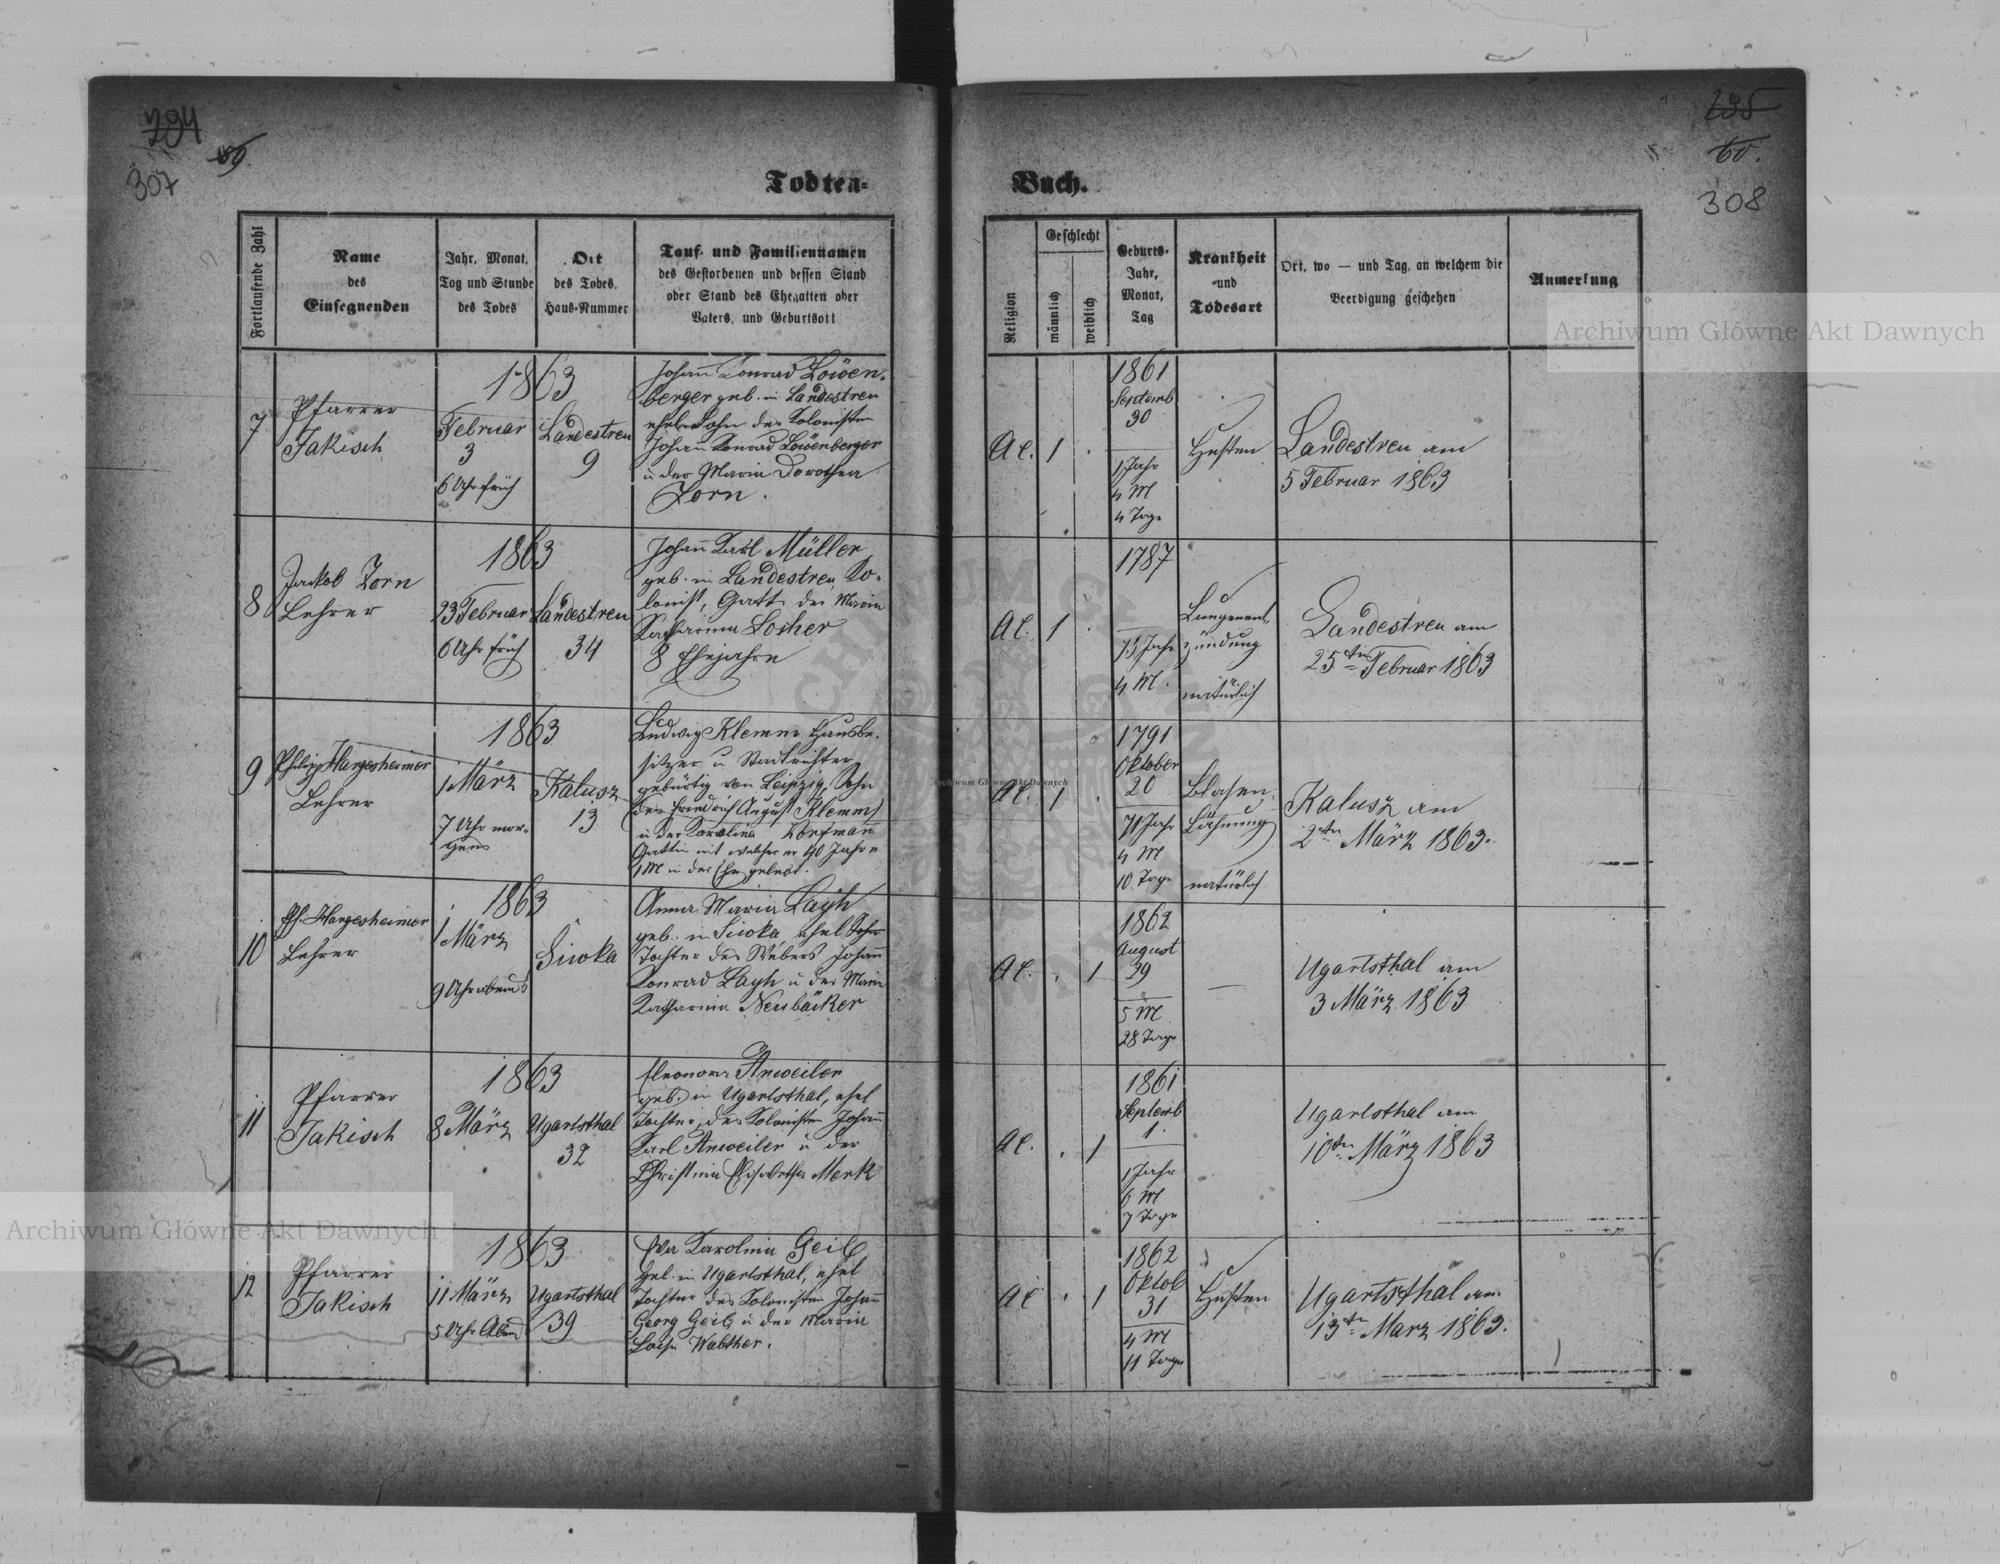 794
307
59.
Todten-
Fortlaufende Zahl
Name
des
Einsegnenden
Jahr, Monat,
Tag und Stunde
des Todes
Ort
des Todes,
Haus-Nummer
Tauf- und Familiennamen
des Gestorbenen und dessen Stand
oder Stand des Ehegatten oder
Vaters, und Geburtsort
7
Pfarrer
Jakisch
1863
Februar
3
6 Uhr früh
Landestreu
9
Johann Konrad Löwen-
berger geb. in Landestreu
ehel Sohn des Kolonisten
Johann Konrad Löwenberger
u der Maria Dorothea
Zorn.
8
Jackob Zorn
Lehrer
1863
23 Februar
6 Uhr früh
Landestreu
34
Johann Karl Müller
geb. in Landestreu Ko-
lonist, Gatte der Maria
Katharina Locher
8 Ehejahre
9
Philipp Hargesheimer
Lehrer
1863
1 März
7 Uhr mor-
gens
Kalusz
13
Ludwig Klemm Hausbe-
sitzer u Stadtrichter
gebürtig von Leipzig, Sohn
des Friedrich August Klemm
u der Karolina
Gattin mit welcher er 40 Jahre
4 M in der Ehe gelebt.
10
Ph. Hargesheimer
Lehrer
1863
1 März
9 Uhr abends
Siwka
Anna Maria Layh
geb. in Siwka ehel Sohn
Tochter des Webers Johann
Konrad Layh u der Maria
Katharina Neubäcker
11
Pfarrer
Jakisch
1863
8 März
Ugartsthal
32
Eleonora Anweiler
geb. in Ugartsthal, ehel
Tochter des Kolonisten Johann
Karl Anweiler u der
Christina Elisabetha Merk
12
Pfarrer
Jakisch
1863
11 März
5 Uhr Abend
Ugartsthal
39
Eva Karolina Geib
geb. in Ugartsthal, ehel
Tochter des Kolonisten Johann
Georg Geib u der Maria
Walther.
295
60.
308
Buch.
Religion
Geschlecht
männlich
weiblich
Geburts-
Jahr,
Monat,
Tag
Krankheit
und
Todesart
Ort, wo — und Tag, an welchem die
Beerdigung geschehen
Anmerkung
1861
Septemb
30
1 Jahr
4 M
4 Tage
AC. 1 .
Husten
Landestreu am
5 Februar 1863
1787
75 Jahr
4 M.
AC. 1 .
Lungenent-
zündung
natürlich
Landestreu am
25ten Februar 1863
1791
Oktober
20
71 Jahr
4 M
10 Tage
AC. 1 .
Blasen-
Lähmung
natürlich
Kalusz am
2ten März 1863.
1862
August
39
5 M
28 Tage
AC. . 1
—
Ugartsthal am
3 März 1863
1861
Septemb
1.
1 Jahr
6 M
7 Tage
AC. . 1
Ugartsthal am
10ten März 1863
1862
Oktob
31
4 M
11 Tage
AC . 1
Husten
Ugartsthal am
13ten Marz 1863.
Archiwum Główne Akt Dawnych
Archiwum Główne Akt Dawnych
Archiwum Główne Akt Dawnych